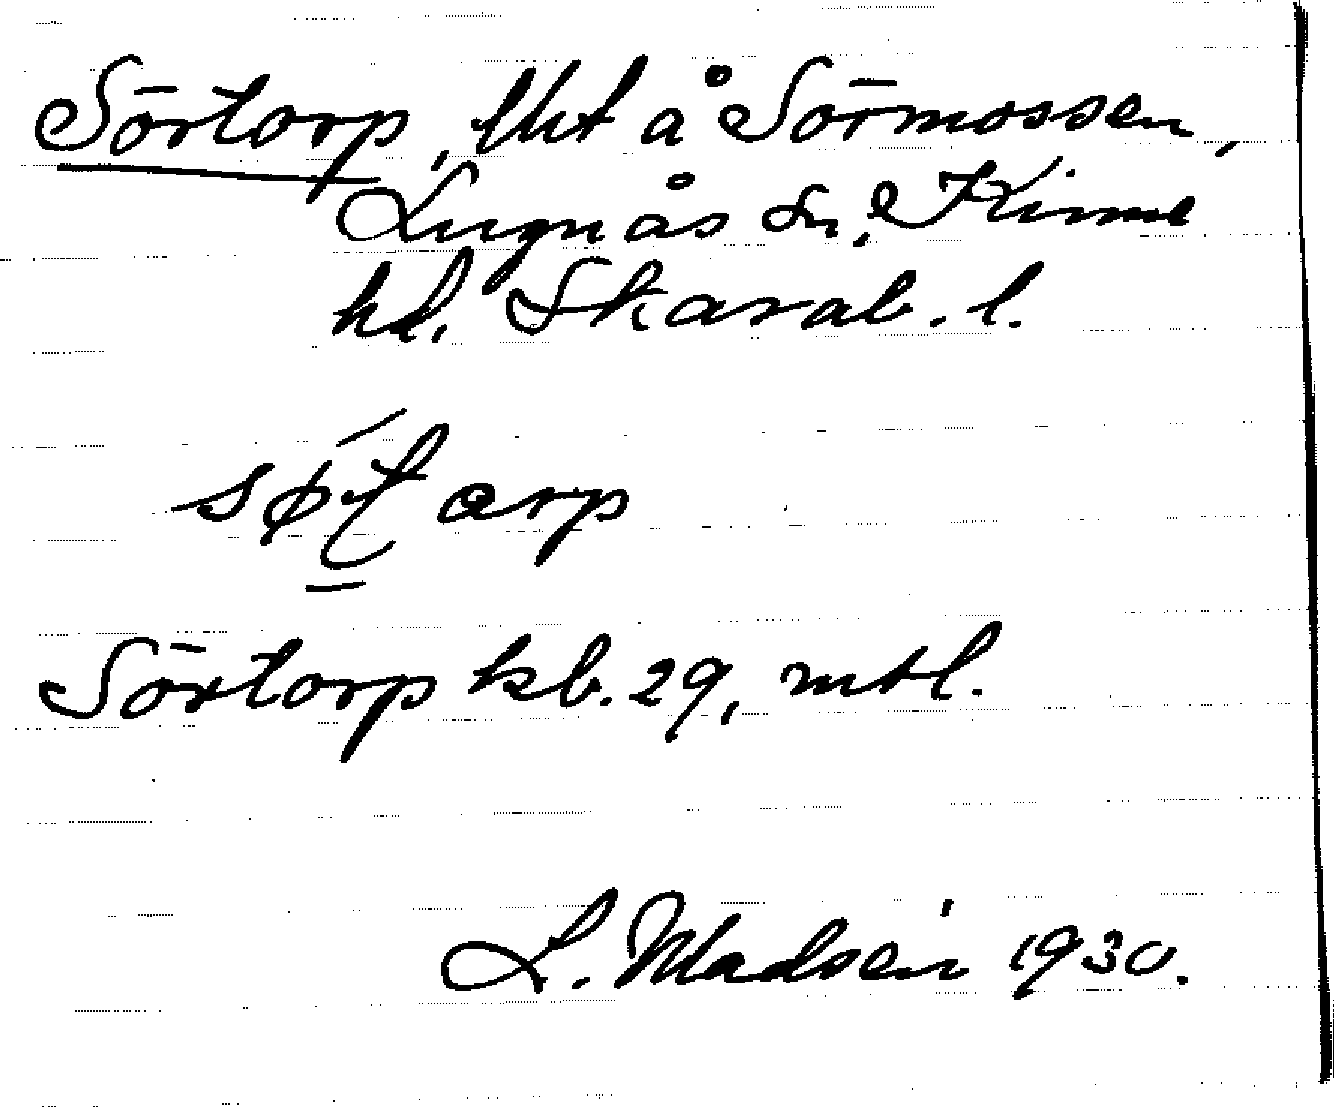 Sörtorp, tht å Sörmossen,
Lugnås sn, Kinne
hd. Skarab. l.
søt̠arp
Sörtorp kb. 29, mtl.
L. Madsén 1930.